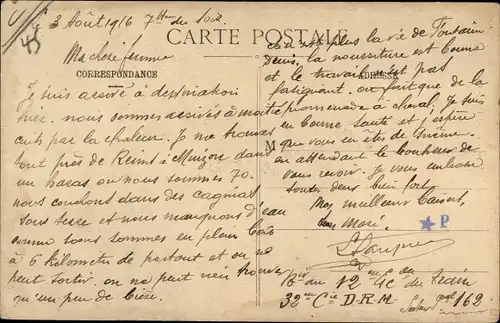 3 Août 1916 7h du Soir
CARTE POSTALE
Ma chère femme
CORRESPONDANCE
Je suis arrivé à destination
hier. nous sommes arrivés à moitié
cuits par la chaleur. Je me trouve
tout près de Reims à Muizon dans
un haras ou nous sommes 70.
nous couchons dans des cagnias
sous terre et nous manquons d'eau
comme nous sommes en plein bois
à 6 kilometre de partout et on ne
peut sortir. on ne peut rien trouver
qu'un peu de bière.
plus la vie de Fontain
la nourriture est bonne
et le travail est pas
ADRESSE
fatiguant. on fait que de la
promenade à cheval. Je suis
en bonne Santé et j'espère
M
que vous en êtes de même.
en attendant le bonheur de
vous revoir. Je vous embrasse
toutes deux bien fort
Mes meilleurs baisers
ton Mari.
P
du 12 du Train
32me Cie D.R.M. 162
45